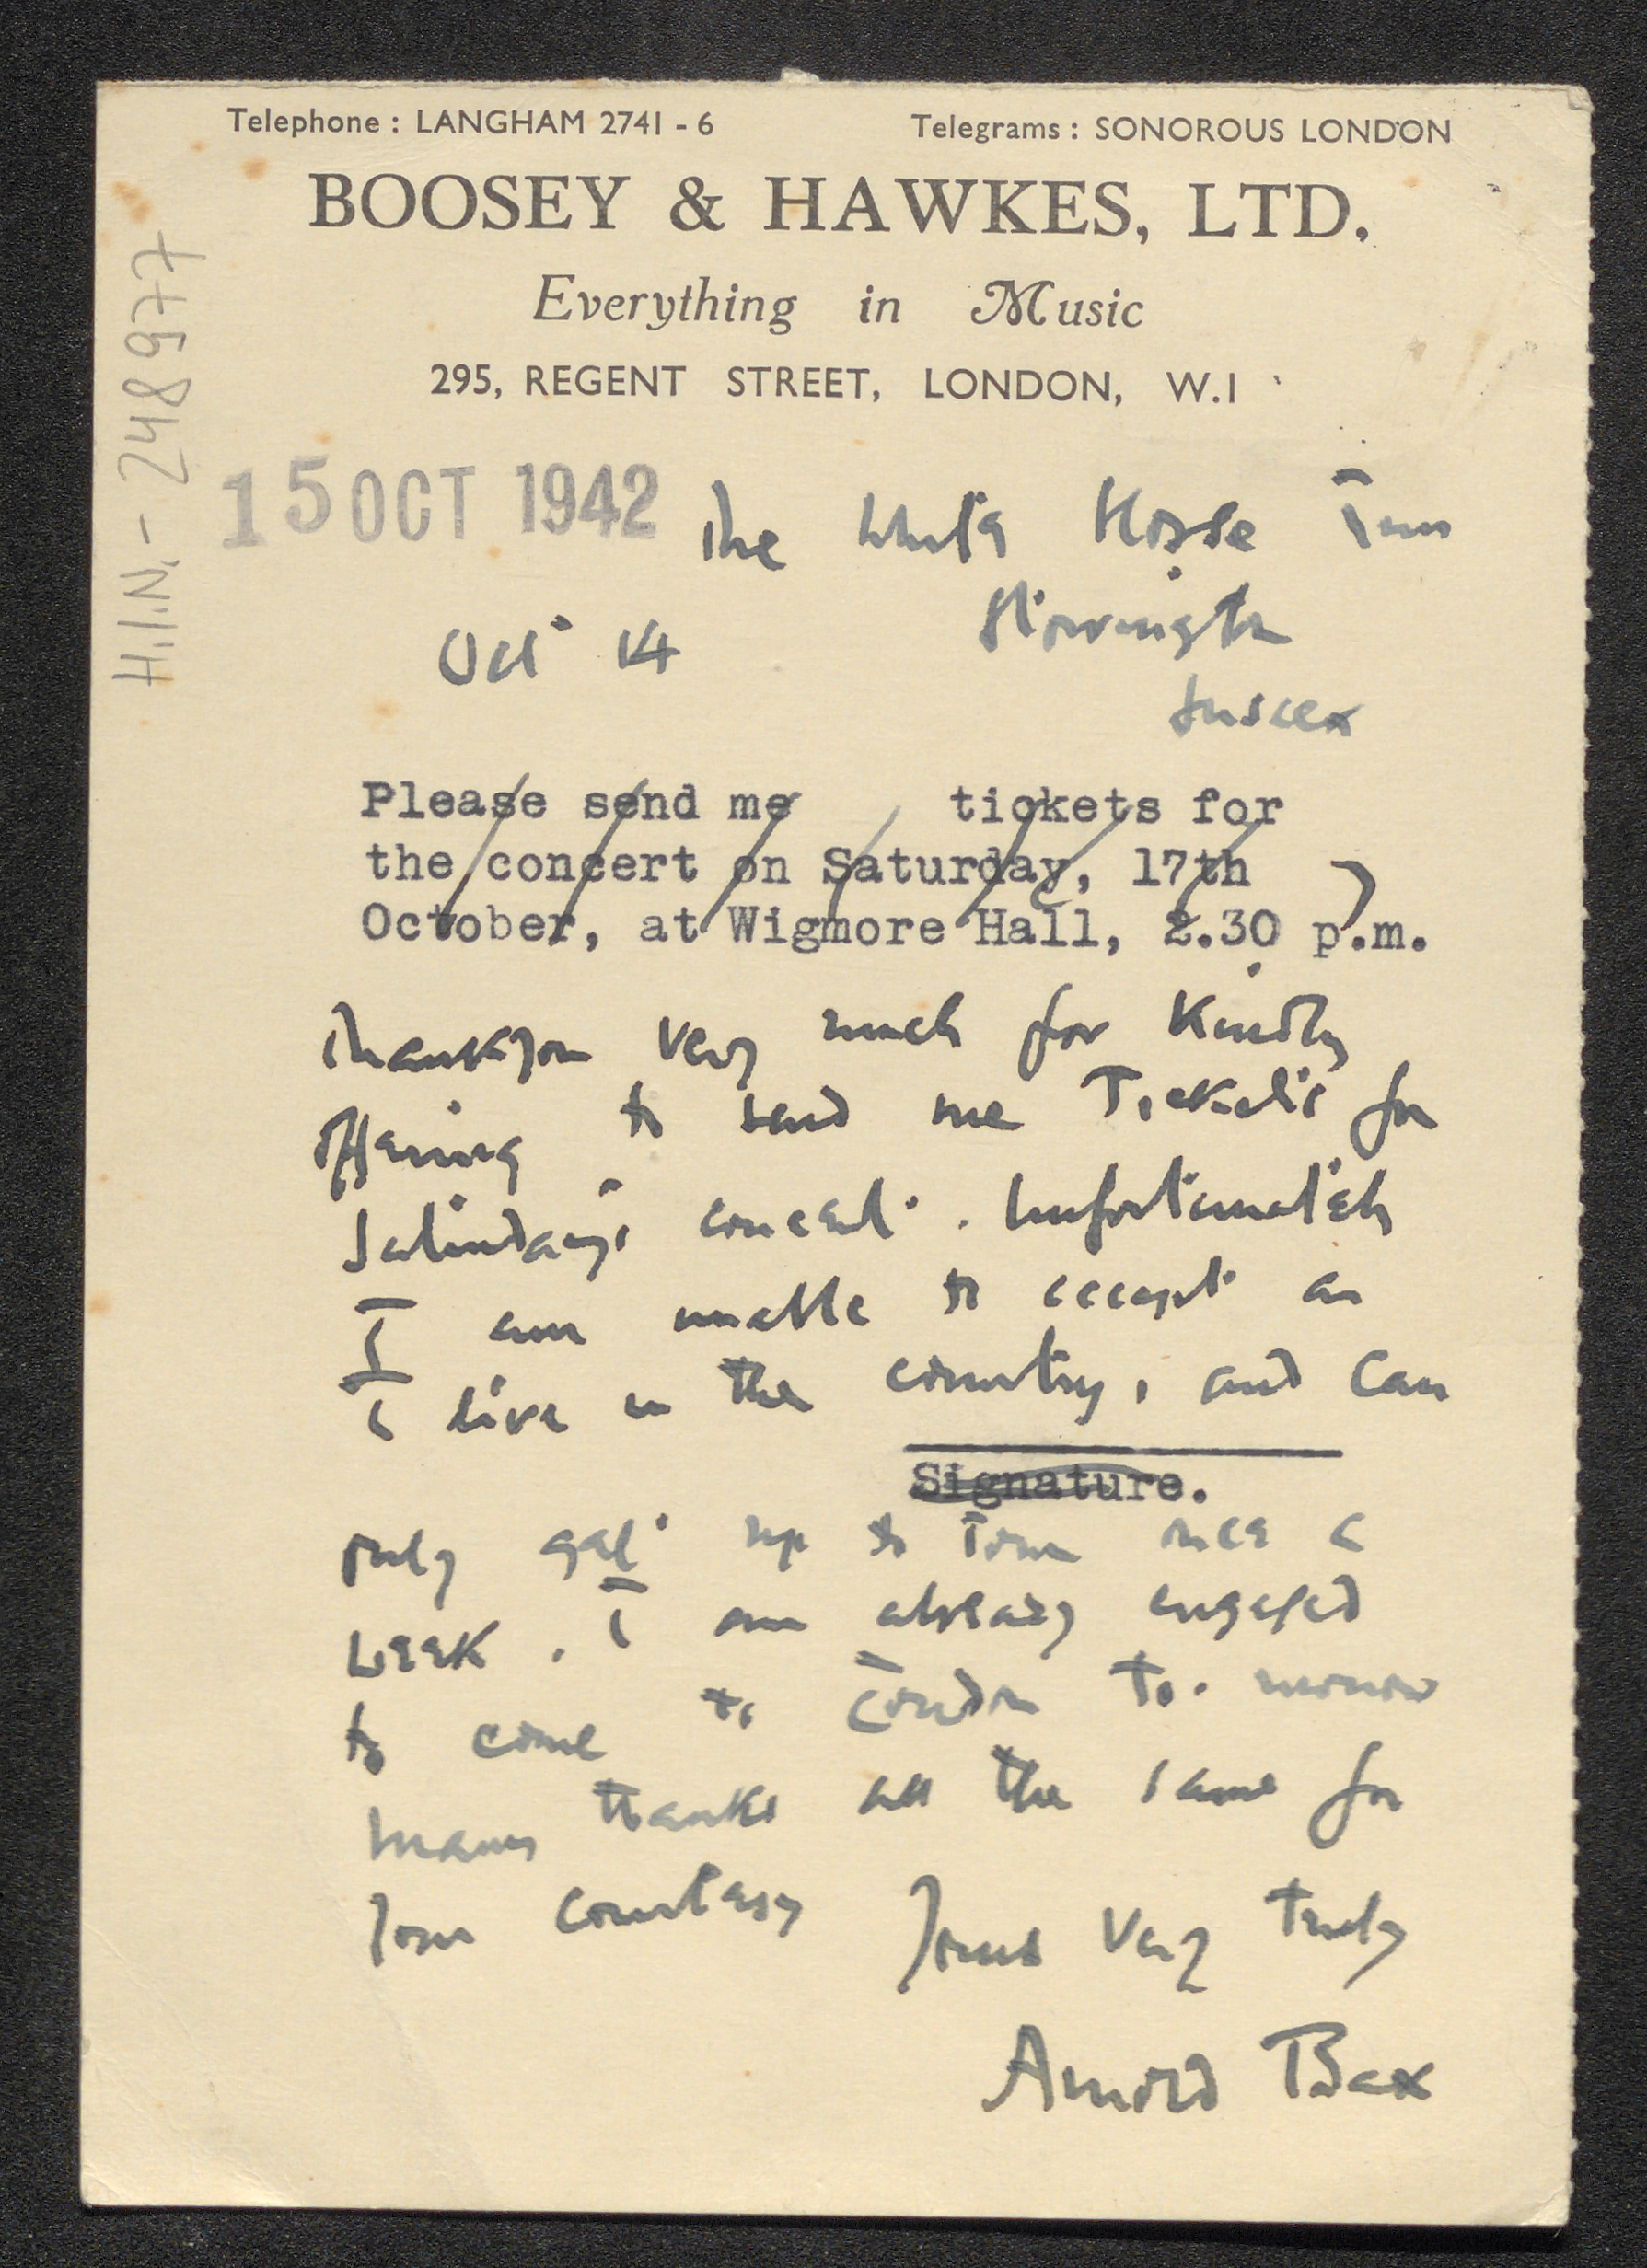 Telephone : LANGHAM 2741 - 6
Telegrams : SONOROUS LONDON
BOOSEY & HAWKES, LTD.
Everything in Music
295, REGENT STREET, LONDON, W.1
H.I.N. - 248977
15 OCT 1942
The White Horse Inn
Storrington
Sussex
Oct 14
Please send me tickets for
the concert on Saturday, 17th
October, at Wigmore Hall, 2.30 p.m.
Thank you very much for kindly
offering to send me tickets for
Saturday's concert. Unfortunately
I am unable to accept as
I live in the country, and can
Signature.
only get up to town once a
week. I am already engaged
to come to London to-morrow
Many thanks all the same for
your courtesy
Yours very truly
Arnold Bax